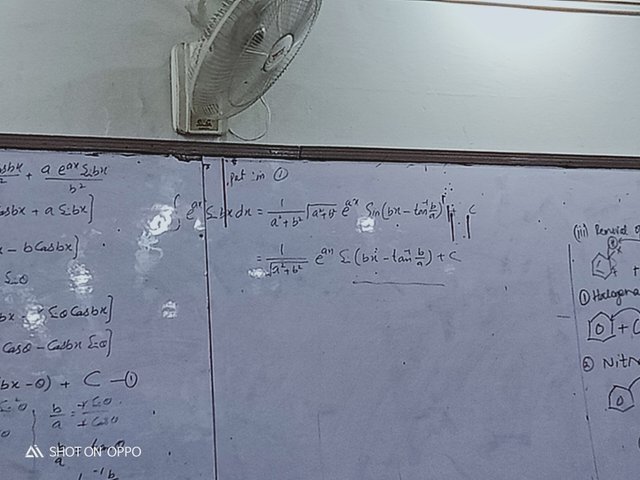 asbx + a e^ax Sinbx / b²
Cosbx + a Sinbx]
x - bCosbx]
Sinθ
bx - SinθCosbx]
Cosθ - Cosbx Sinθ]
(bx - θ) + C —①
b/a = rSinθ / rCosθ
b/a
put in ①
∫ e^ax Sinbx dx = 1/(a²+b²) √(a²+b²) e^ax Sin(bx - tan⁻¹ b/a) + C
= 1/√(a²+b²) e^ax Sin (bx - tan⁻¹ b/a) + C
(iii) Removal of
① Halogena
② Nitr
SHOT ON OPPO